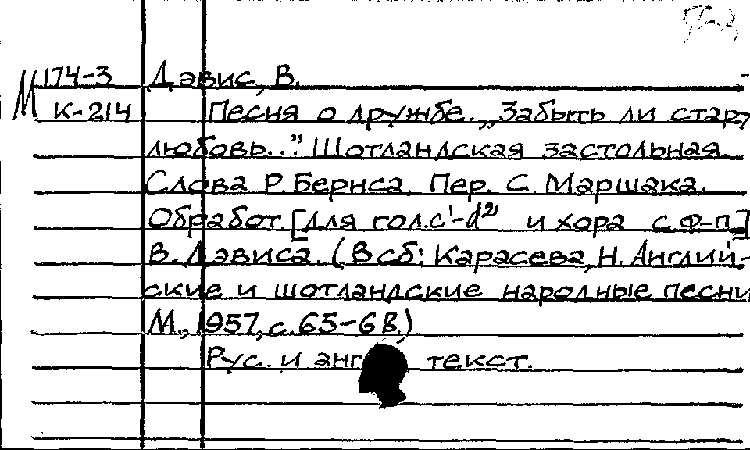 М 174-3 Дэвис, В.
К-214 Песня о дружбе. „Забыть ли стар.
любовь..". Шотландская застольная.
Слова Р. Бернса. Пер. С. Маршака.
Обработ. [для гол. c¹-d² и хора с ф-п.]
В. Дэвиса. (В сб: Карасева, Н. Англий-
ские и шотландские народные песни
М., 1957, с. 65-68.)
Рус. и англ. текст.